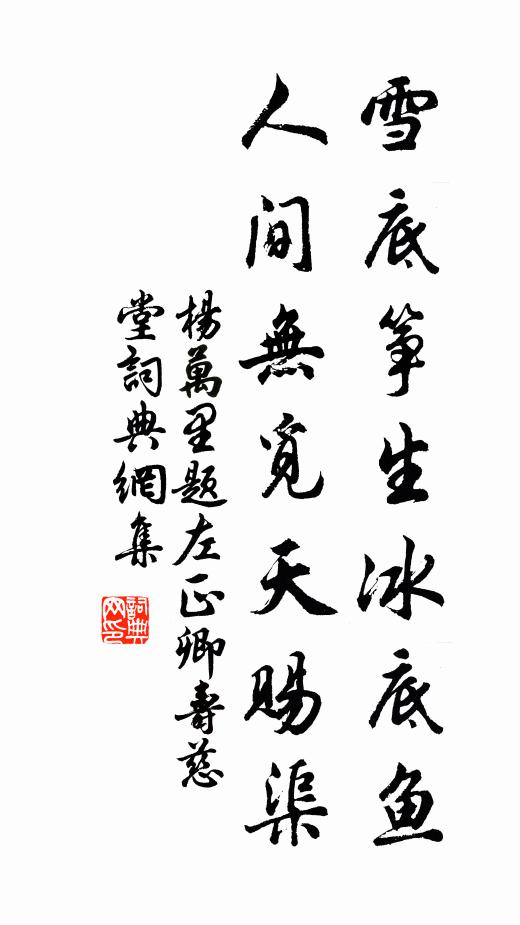 雪底筝生冰底鱼
人间無覓天赐渠
楊萬里题左正卿壽慈
堂詞典網集
詞典网印